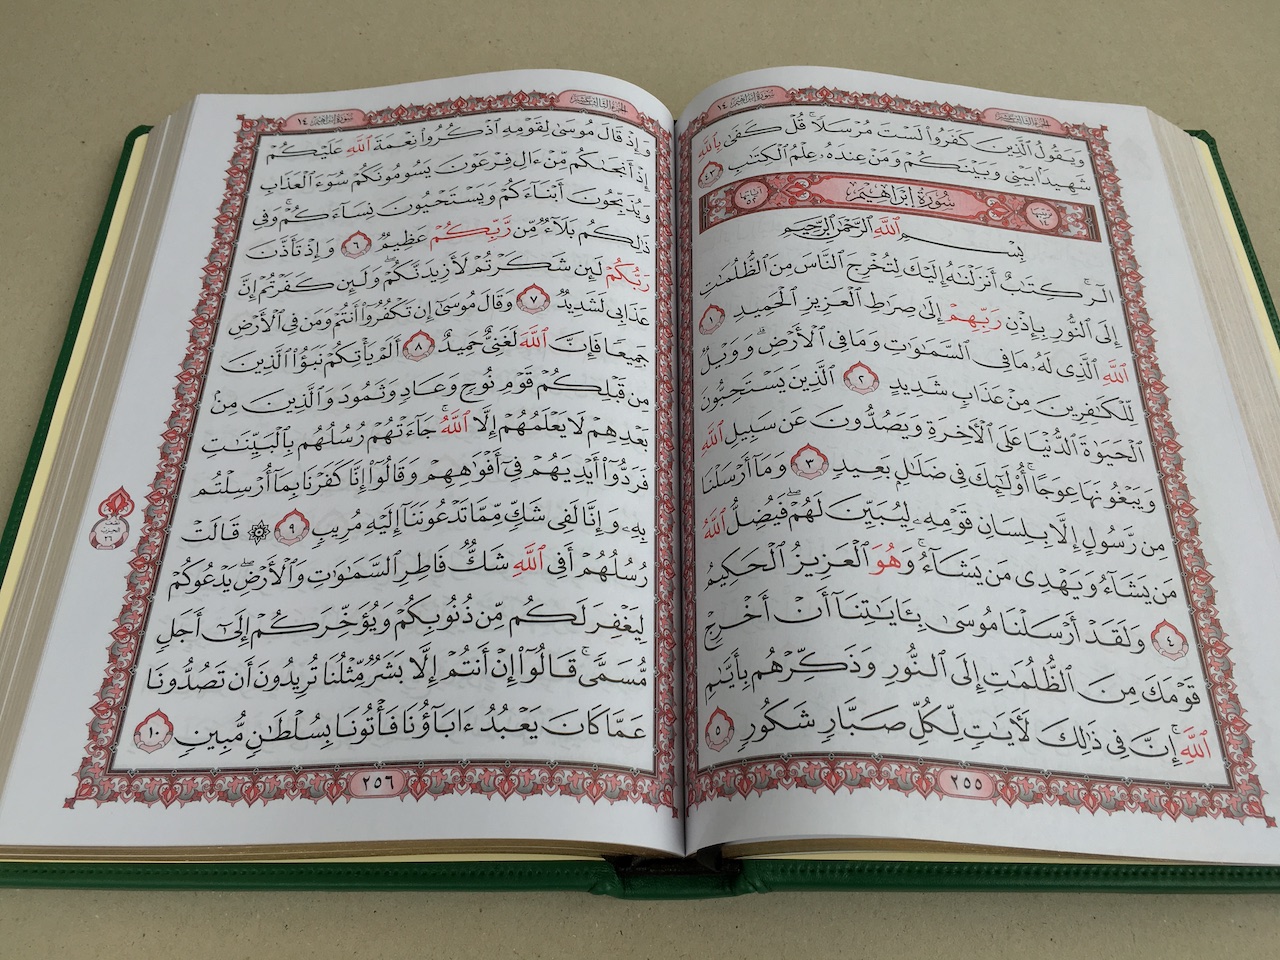 سورة إبراهيم ١٤
الجزء الثالث عشر
وَيَقُولُ ٱلَّذِينَ كَفَرُوا۟ لَسْتَ مُرْسَلًا ۚ قُلْ كَفَىٰ بِٱللَّهِ
شَهِيدًۢا بَيْنِى وَبَيْنَكُمْ وَمَنْ عِندَهُۥ عِلْمُ ٱلْكِتَٰبِ ٤٣
ترتيبها ١٤ سُورَةُ إِبْرَاهِيمَ آياتها ٥٢
بِسْمِ ٱللَّهِ ٱلرَّحْمَٰنِ ٱلرَّحِيمِ
الٓر ۚ كِتَٰبٌ أَنزَلْنَٰهُ إِلَيْكَ لِتُخْرِجَ ٱلنَّاسَ مِنَ ٱلظُّلُمَٰتِ
إِلَى ٱلنُّورِ بِإِذْنِ رَبِّهِمْ إِلَىٰ صِرَٰطِ ٱلْعَزِيزِ ٱلْحَمِيدِ ١
ٱللَّهِ ٱلَّذِى لَهُۥ مَا فِى ٱلسَّمَٰوَٰتِ وَمَا فِى ٱلْأَرْضِ ۗ وَوَيْلٌ
لِّلْكَٰفِرِينَ مِنْ عَذَابٍ شَدِيدٍ ٢ ٱلَّذِينَ يَسْتَحِبُّونَ
ٱلْحَيَوٰةَ ٱلدُّنْيَا عَلَى ٱلْءَاخِرَةِ وَيَصُدُّونَ عَن سَبِيلِ ٱللَّهِ
وَيَبْغُونَهَا عِوَجًا ۚ أُو۟لَٰٓئِكَ فِى ضَلَٰلٍۭ بَعِيدٍ ٣ وَمَآ أَرْسَلْنَا
مِن رَّسُولٍ إِلَّا بِلِسَانِ قَوْمِهِۦ لِيُبَيِّنَ لَهُمْ ۖ فَيُضِلُّ ٱللَّهُ
مَن يَشَآءُ وَيَهْدِى مَن يَشَآءُ ۚ وَهُوَ ٱلْعَزِيزُ ٱلْحَكِيمُ
٤ وَلَقَدْ أَرْسَلْنَا مُوسَىٰ بِـَٔايَٰتِنَآ أَنْ أَخْرِجْ
قَوْمَكَ مِنَ ٱلظُّلُمَٰتِ إِلَى ٱلنُّورِ وَذَكِّرْهُم بِأَيَّىٰمِ
ٱللَّهِ ۚ إِنَّ فِى ذَٰلِكَ لَءَايَٰتٍ لِّكُلِّ صَبَّارٍ شَكُورٍ ٥
٢٥٥
الجزء الثالث عشر
سورة إبراهيم ١٤
وَإِذْ قَالَ مُوسَىٰ لِقَوْمِهِ ٱذْكُرُوا۟ نِعْمَةَ ٱللَّهِ عَلَيْكُمْ
إِذْ أَنجَىٰكُم مِّنْ ءَالِ فِرْعَوْنَ يَسُومُونَكُمْ سُوٓءَ ٱلْعَذَابِ
وَيُذَبِّحُونَ أَبْنَآءَكُمْ وَيَسْتَحْيُونَ نِسَآءَكُمْ ۚ وَفِى
ذَٰلِكُم بَلَآءٌ مِّن رَّبِّكُمْ عَظِيمٌ ٦ وَإِذْ تَأَذَّنَ
رَبُّكُمْ لَئِن شَكَرْتُمْ لَأَزِيدَنَّكُمْ ۖ وَلَئِن كَفَرْتُمْ إِنَّ
عَذَابِى لَشَدِيدٌ ٧ وَقَالَ مُوسَىٰٓ إِن تَكْفُرُوٓا۟ أَنتُمْ وَمَن فِى ٱلْأَرْضِ
جَمِيعًا فَإِنَّ ٱللَّهَ لَغَنِىٌّ حَمِيدٌ ٨ أَلَمْ يَأْتِكُمْ نَبَؤُا۟ ٱلَّذِينَ
مِن قَبْلِكُمْ قَوْمِ نُوحٍ وَعَادٍ وَثَمُودَ وَٱلَّذِينَ مِنۢ
بَعْدِهِمْ لَا يَعْلَمُهُمْ إِلَّا ٱللَّهُ ۚ جَآءَتْهُمْ رُسُلُهُم بِٱلْبَيِّنَٰتِ
فَرَدُّوٓا۟ أَيْدِيَهُمْ فِىٓ أَفْوَٰهِهِمْ وَقَالُوٓا۟ إِنَّا كَفَرْنَا بِمَآ أُرْسِلْتُم
بِهِۦ وَإِنَّا لَفِى شَكٍّ مِّمَّا تَدْعُونَنَآ إِلَيْهِ مُرِيبٍ ٩ ۞ قَالَتْ
رُسُلُهُمْ أَفِى ٱللَّهِ شَكٌّ فَاطِرِ ٱلسَّمَٰوَٰتِ وَٱلْأَرْضِ ۖ يَدْعُوكُمْ
لِيَغْفِرَ لَكُم مِّن ذُنُوبِكُمْ وَيُؤَخِّرَكُمْ إِلَىٰٓ أَجَلٍ
مُّسَمًّى ۚ قَالُوٓا۟ إِنْ أَنتُمْ إِلَّا بَشَرٌ مِّثْلُنَا تُرِيدُونَ أَن تَصُدُّونَا
عَمَّا كَانَ يَعْبُدُ ءَابَآؤُنَا فَأْتُونَا بِسُلْطَٰنٍ مُّبِينٍ ١٠
٢٥٦